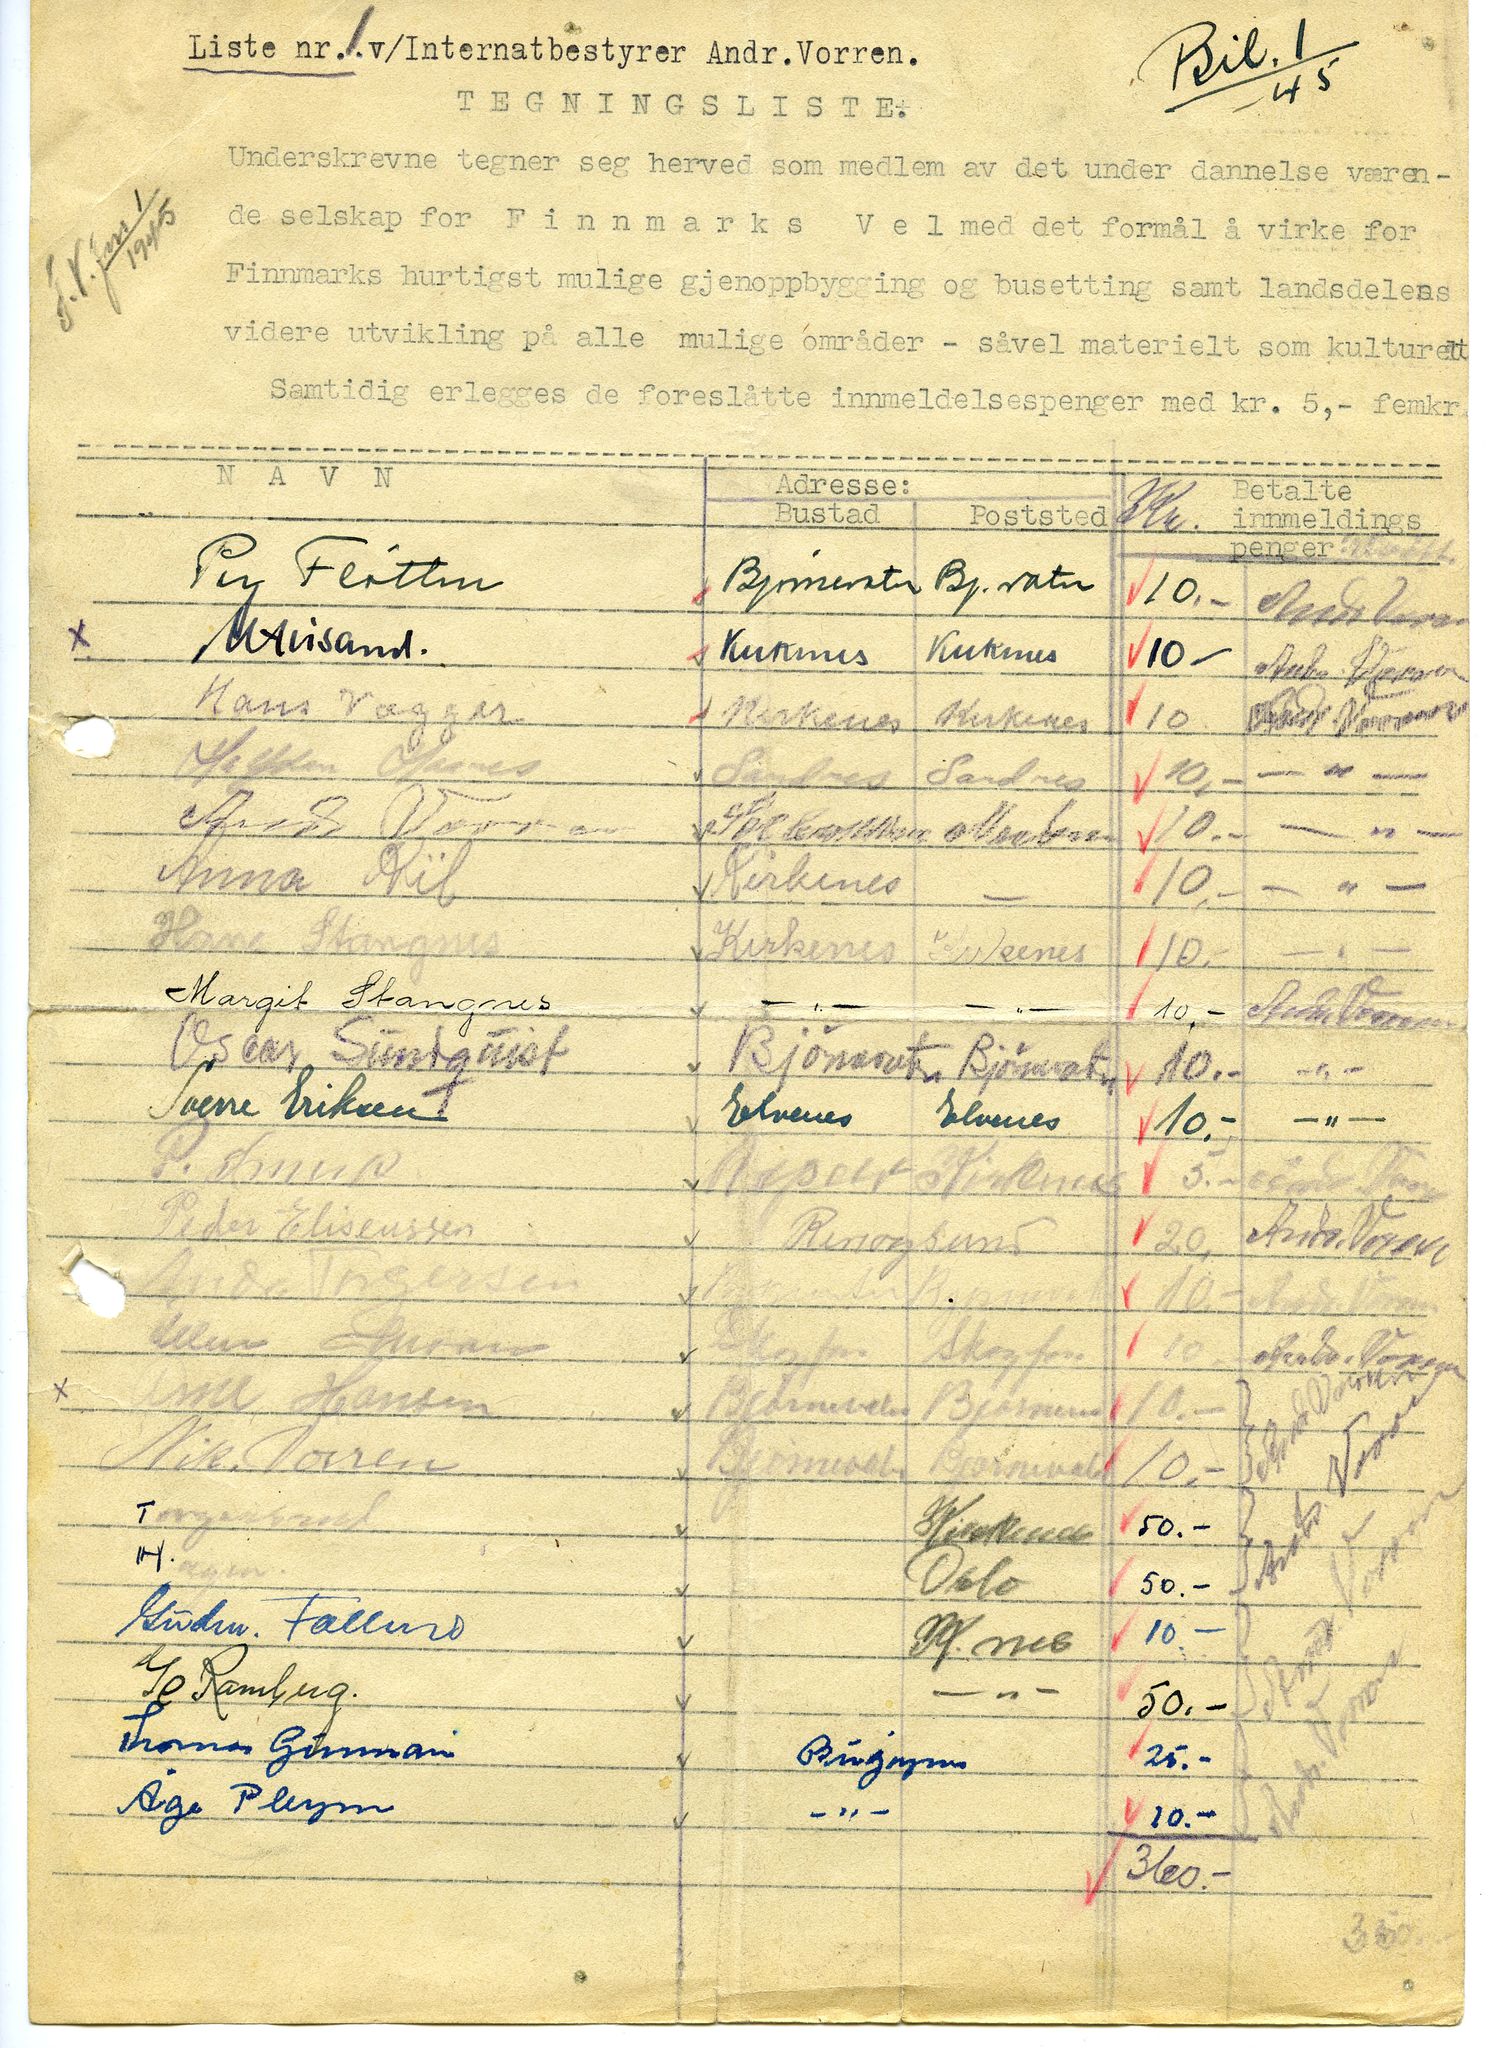 Liste nr. 1. v/Internatbestyrer Andr. Vorren.
Bil. 1/45
TEGNINGSLISTE.
F.V. jnr 1/1945
Underskrevne tegner seg herved som medlem av det under dannelse væren-
de selskap for Finnmarks Vel med det formål å virke for
Finnmarks hurtigst mulige gjenoppbygging og busetting samt landsdelens
videre utvikling på alle mulige områder - såvel materielt som kulturelt
Samtidig erlegges de foreslåtte innmeldelsespenger med kr. 5,- femkr.
NAVN Adresse: Kr. Betalte
Bustad Poststed innmeldings
penger
Bjørnevatn Bj.vatn 10.-
x Kirkenes Kirkenes 10- Andr. Vorren
Hans Vaggar Kirkenes Kirkenes 10 Andr. Vorren
Sandnes Sandnes 10,- — " —
Andr Vorren 10.- — " —
Anna Kiil Kirkenes — 10,- — " —
Hans Stangnes Kirkenes Kirkenes 10.- — " —
Margit Stangnes — " — — " — 10,- Andr. Vorren
Oscar Sundquist Björnevatn Björnevatn 10.- -"-
Sverre Eriksen Elvenes Elvenes 10.- — " —
P. Kirkenes 5.- Andr. Vorren
Peder Eliseussen 20, Andr. Vorren
Andr. Torgersen 10.- Andr. Vorren
Skogfoss Skogfoss 10 Andr. Vorren
x Hansen Bjørnevatn Bjørnevatn 10.- Andr. Vorren
Nik. Vorren Bjørnevatn Bjørnevatn 10,-
Kirkenes 50.- Andr. Vorren
Hagen. Oslo 50.-
Gudm. Fallund K.nes 10.- Andr. Vorren
Ramberg. — " — 50.-
Thomas 25.- Andr. Vorren
Åge Pleym -"- 10.-
360.-
350.-